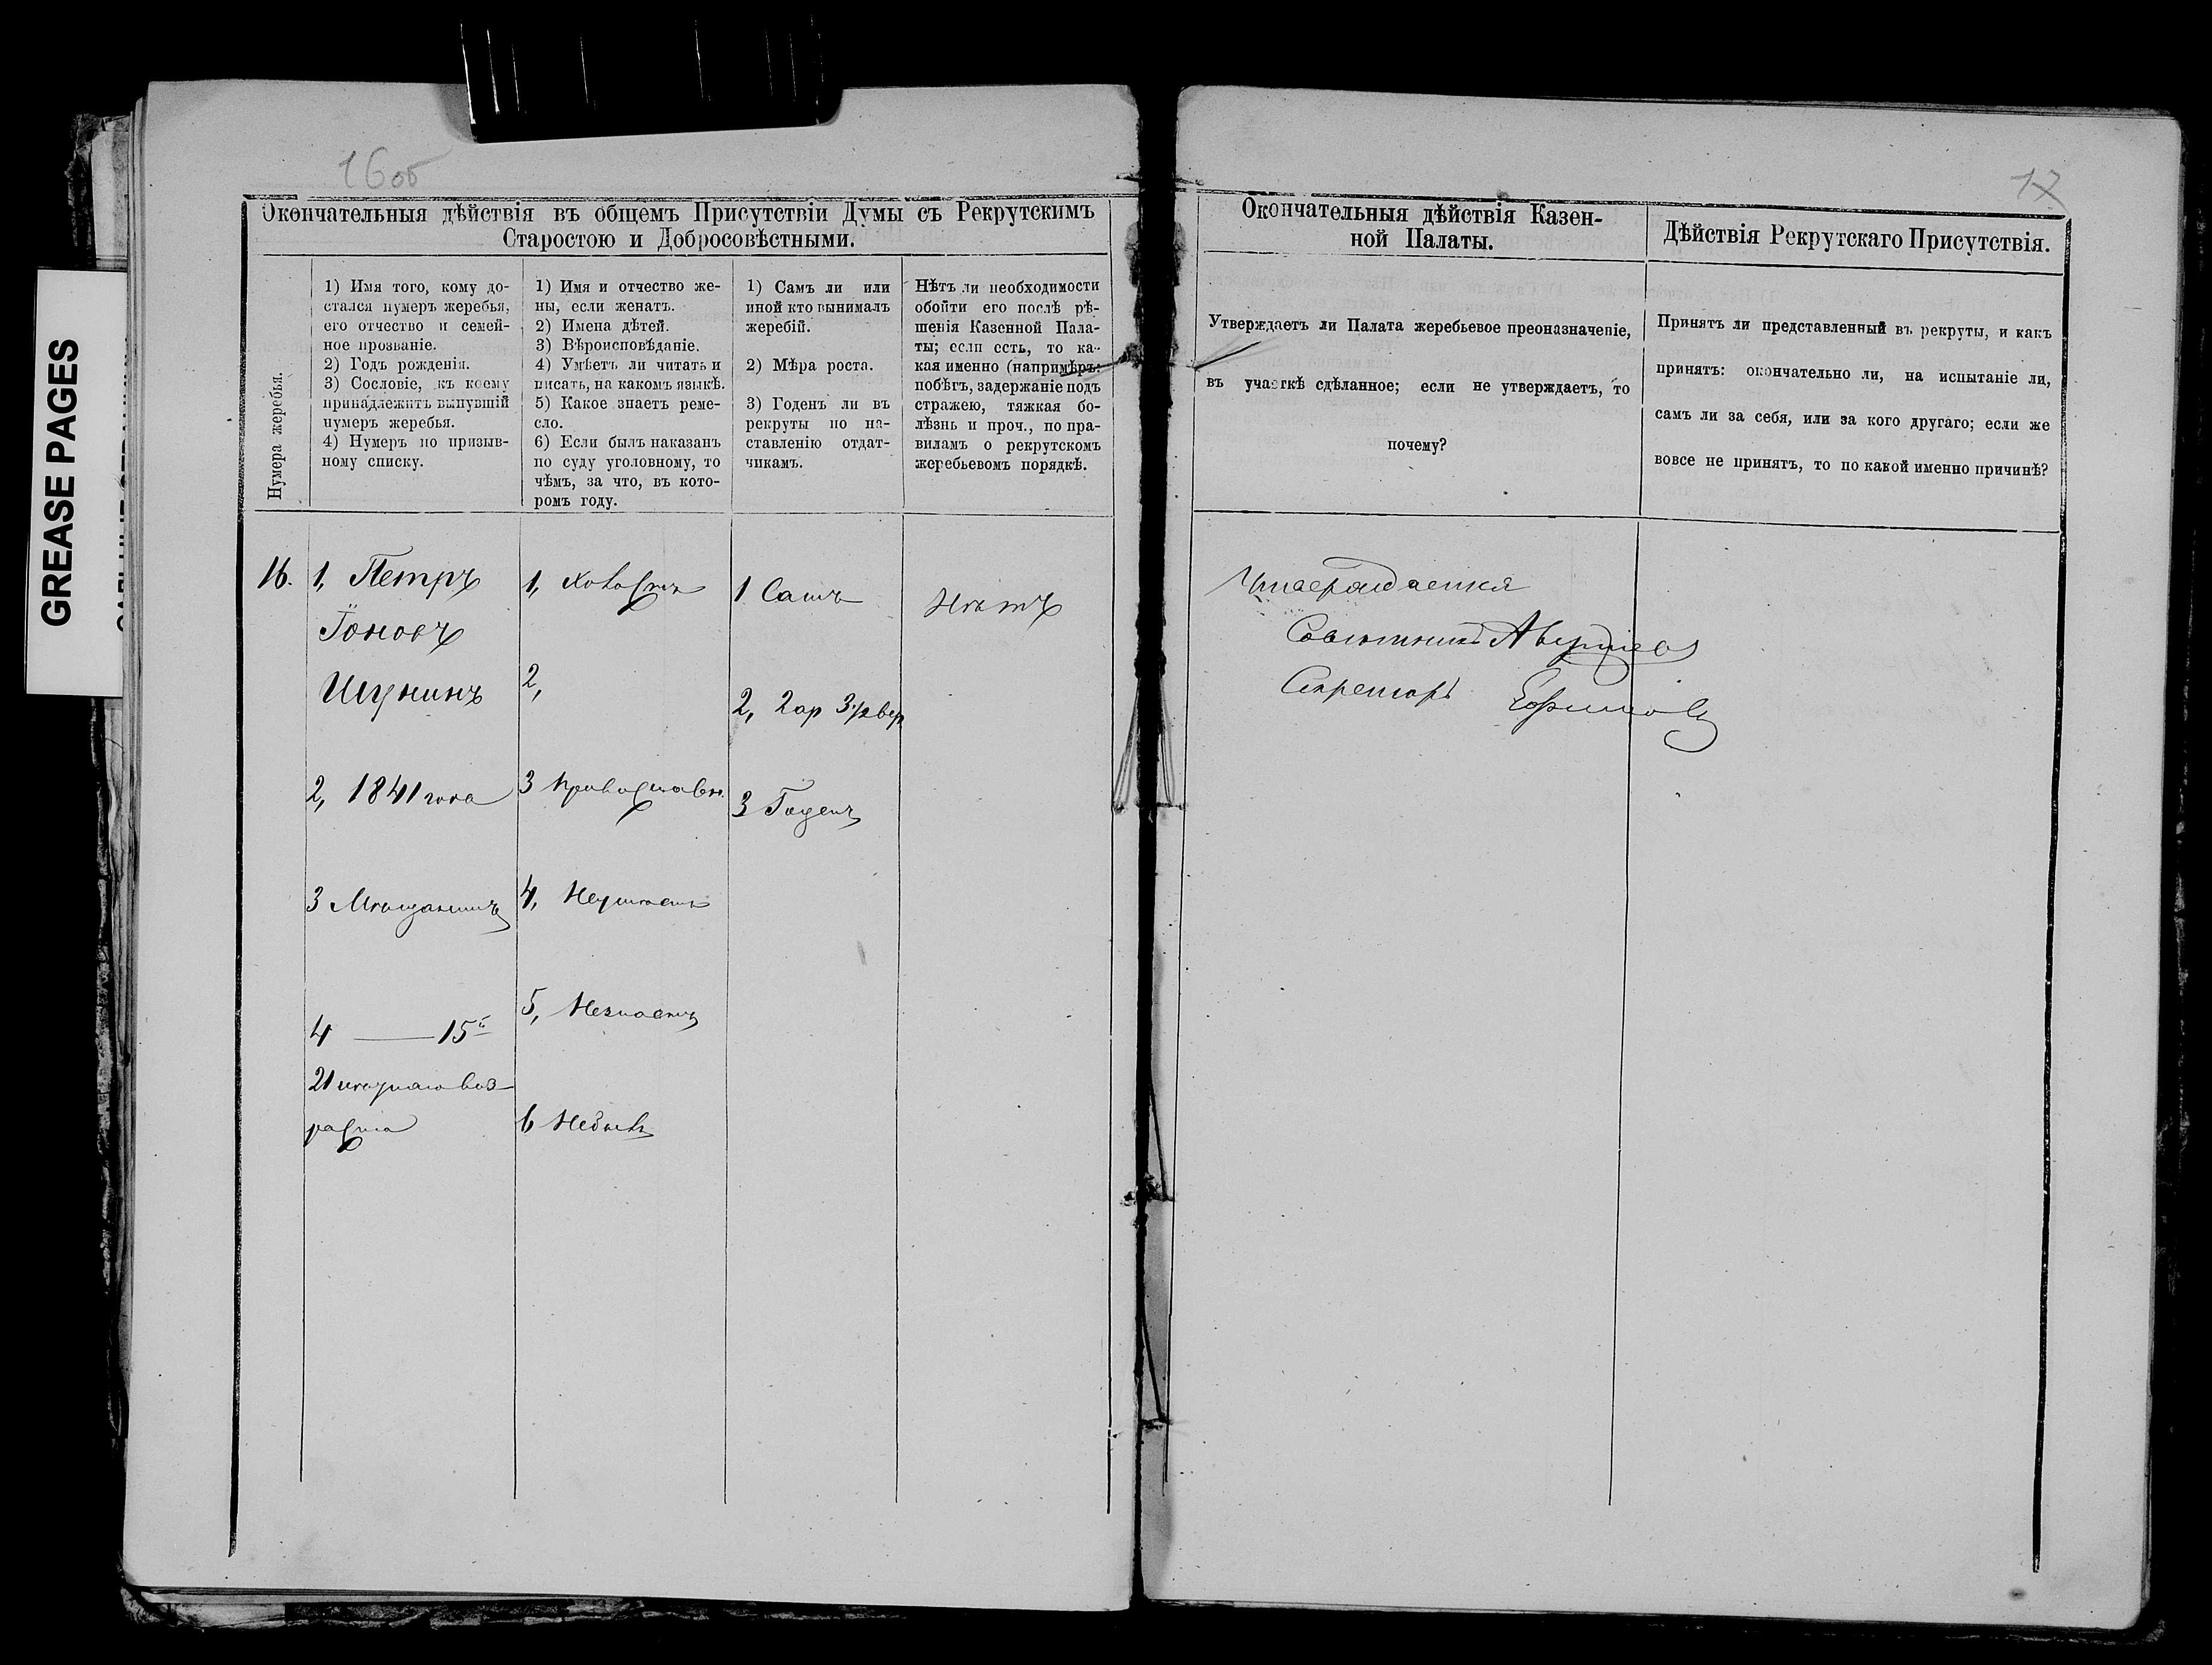 GREASE PAGES
16об
Окончательныя дѣйствія въ общемъ Присутствіи Думы съ Рекрутскимъ
Старостою и Добросовѣстными.
Нумера жеребья.
1) Имя того, кому до-
стался нумеръ жеребья,
его отчество и семей-
ное прозваніе.
2) Годъ рожденія.
3) Сословіе, къ коему
принадлежитъ вынувшій
нумеръ жеребья.
4) Нумеръ по призыв-
ному списку.
1) Имя и отчество же-
ны, если женатъ.
2) Имена дѣтей.
3) Вѣроисповѣданіе.
4) Умѣетъ ли читать и
писать, на какомъ языкѣ.
5) Какое знаетъ реме-
сло.
6) Если былъ наказанъ
по суду уголовному, то
чѣмъ, за что, въ кото-
ромъ году.
1) Самъ ли или
иной кто вынималъ
жеребій.
2) Мѣра роста.
3) Годенъ ли въ
рекруты по на-
ставленію отдат-
чикамъ.
Нѣтъ ли необходимости
обойти его послѣ рѣ-
шенія Казенной Пала-
ты; если есть, то ка-
кая именно (напримѣръ:
побѣгъ, задержаніе подъ
стражею, тяжкая бо-
лѣзнь и проч., по пра-
виламъ о рекрутскомъ
жеребьевомъ порядкѣ.
16.
1, Петръ
Іоновъ
Шунинъ
2, 1841 года
3 Мѣщанинъ
4 — 15й
21 лѣтняго воз-
раста
1, Холостъ
2,
3 Православн.
4, Неумѣетъ
5, Незнаетъ
6 Небылъ
1 Самъ
2, 2 ар 3 1/2 вер
3 Годенъ
Нѣтъ
17
Окончательныя дѣйствія Казен-
ной Палаты.
Утверждаетъ ли Палата жеребьевое преоназначеніе,
въ участкѣ сдѣланное; если не утверждаетъ, то
почему?
Дѣйствія Рекрутскаго Присутствія.
Принятъ ли представленный въ рекруты, и какъ
принятъ: окончательно ли, на испытаніе ли,
самъ ли за себя, или за кого другаго; если же
вовсе не принятъ, то по какой именно причинѣ?
Утверждается
Совѣтникъ
Секретарь Ефимовъ